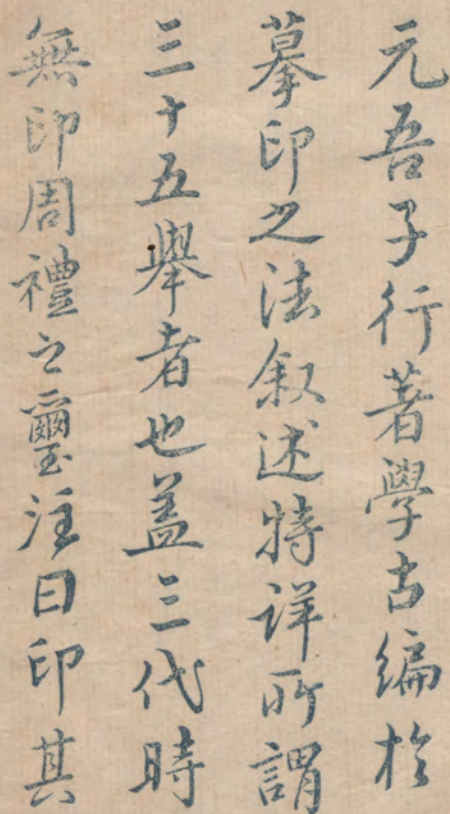 元吾子行著學古編於
摹印之法叙述特詳所謂
三十五舉者也盖三代時
無印周禮之璽注曰印其